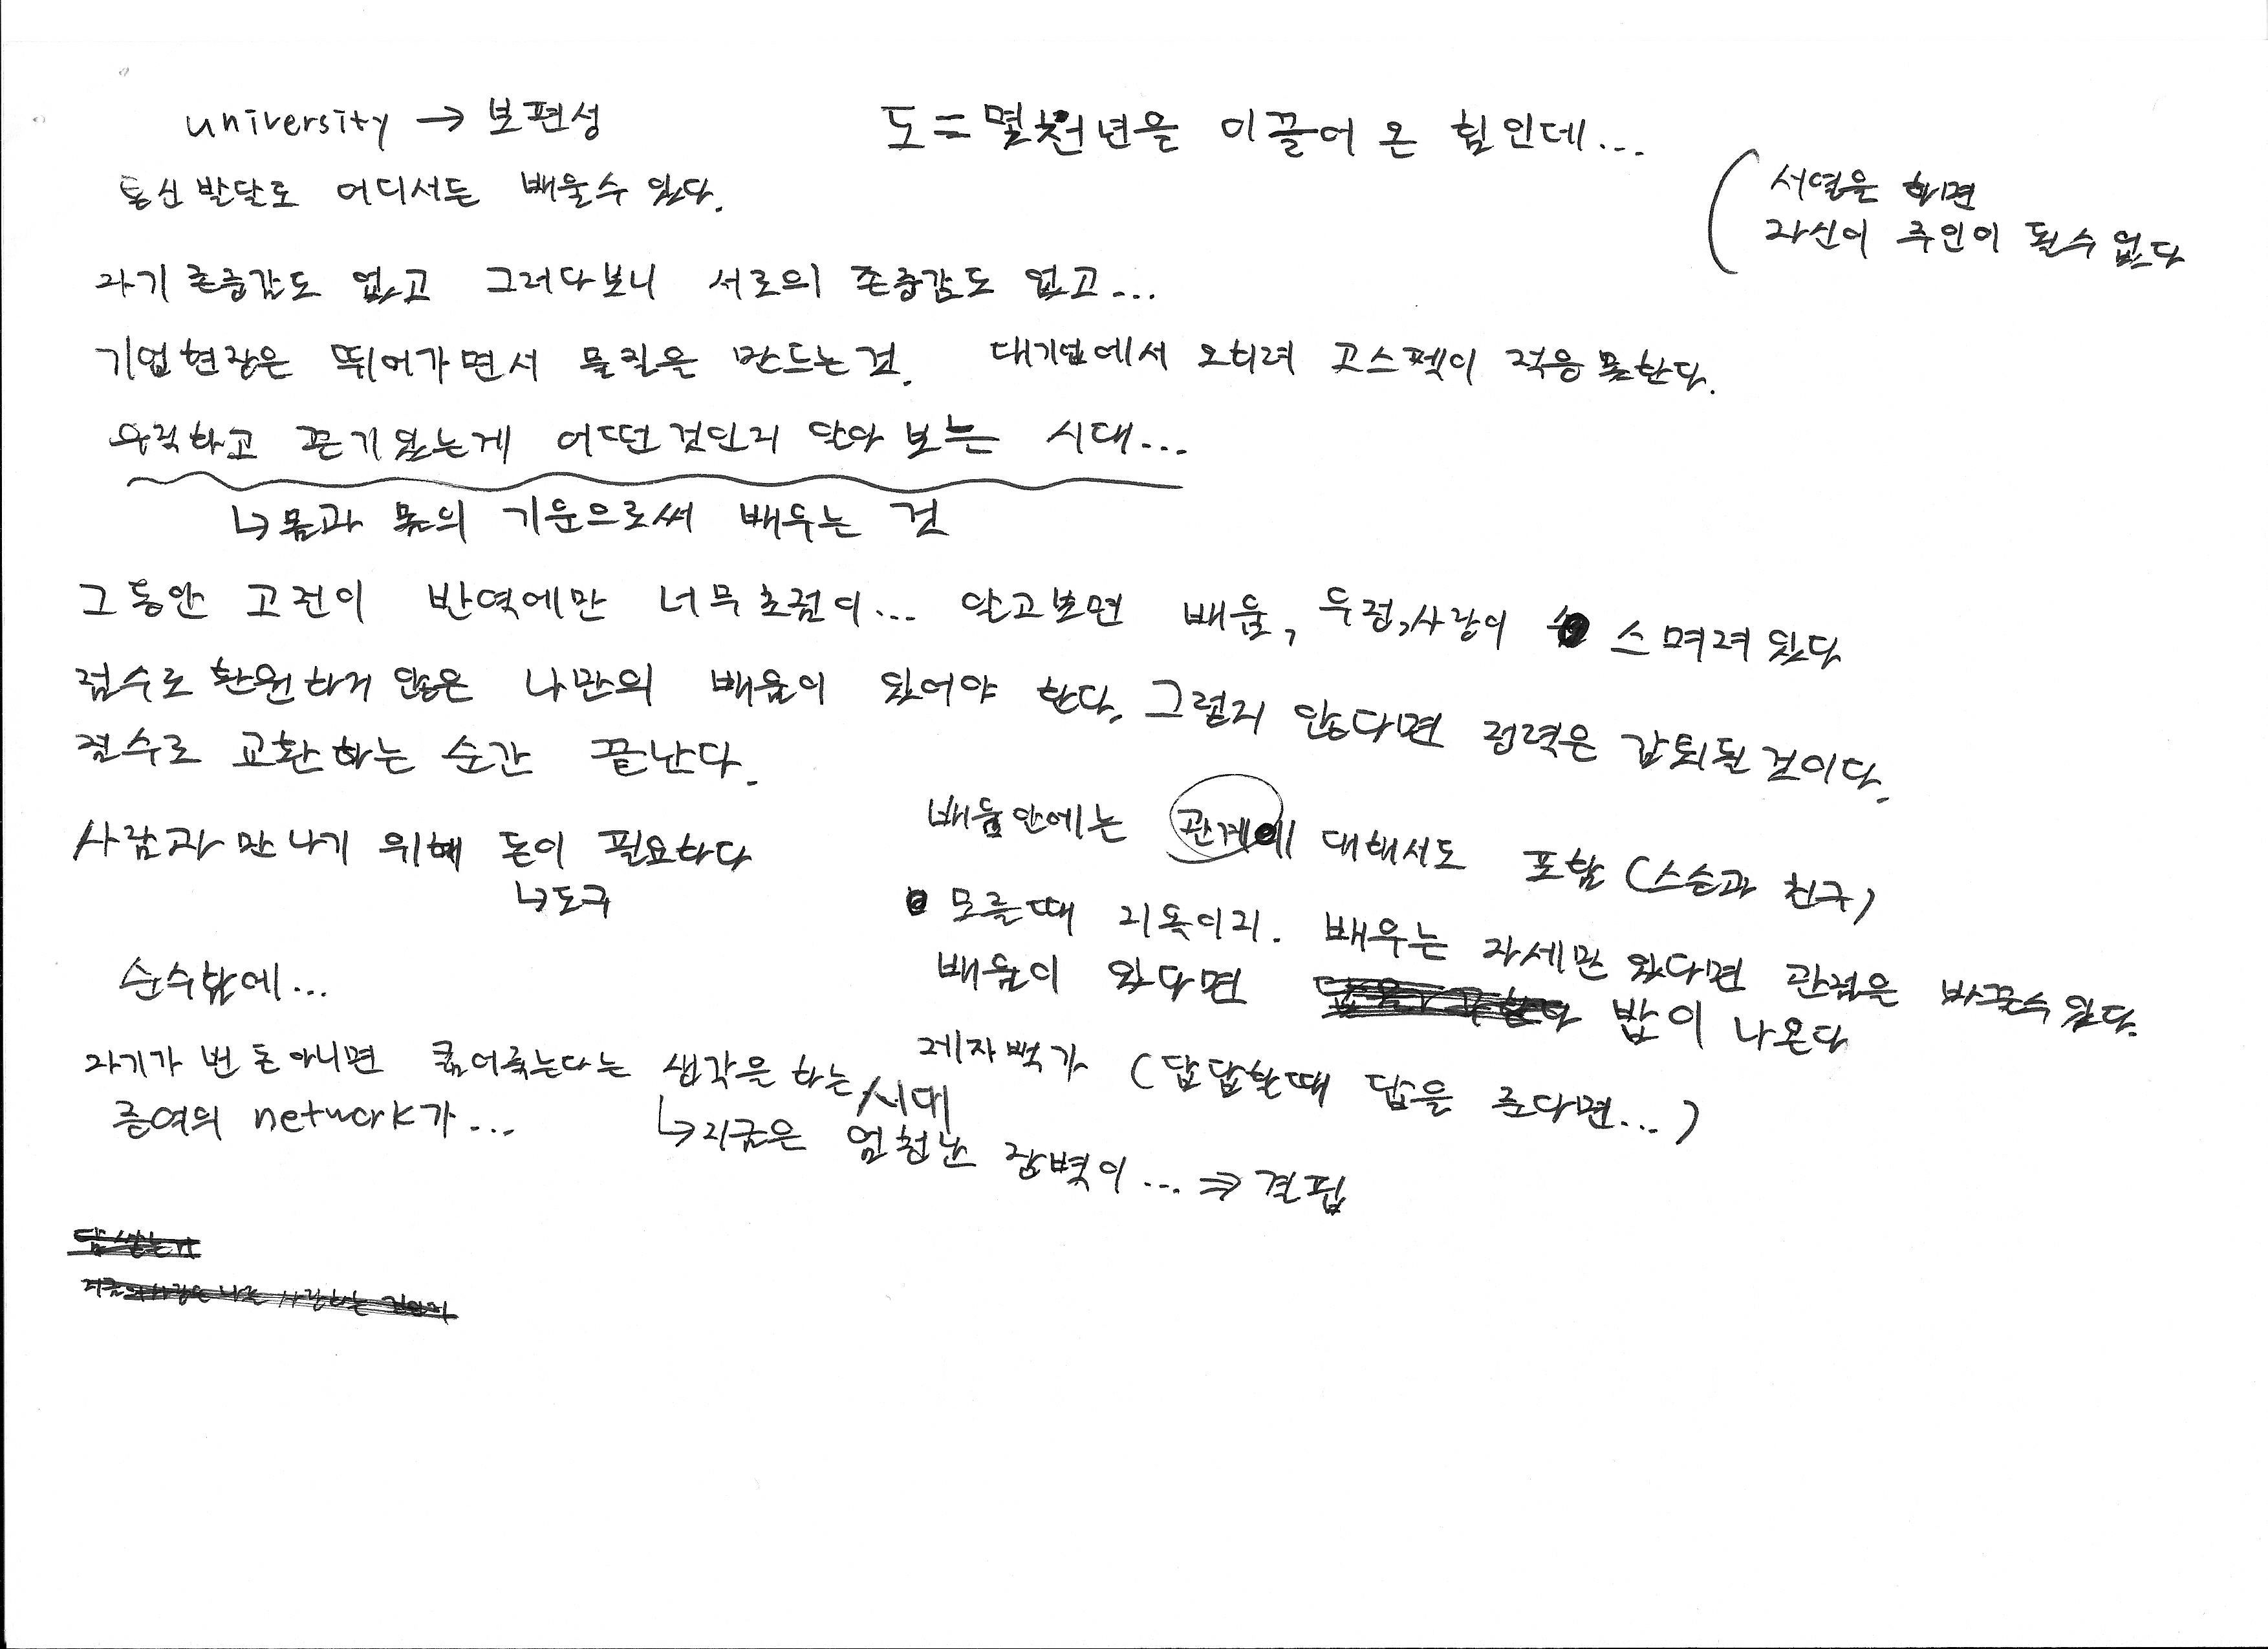 university → 보편성
도 = 몇천년을 이끌어 온 힘인데...
통신발달로 어디서든 배울수 있다.
(서열을 하면
자신이 주인이 될수 없다
자기존중감도 없고 그러다보니 서로의 존중감도 없고...
기업현장은 뛰어가면서 물질을 만드는것. 대기업에서 오히려 고스펙이 적응 못한다.
우직하고 끈기있는게 어떤것인지 알아 보는 시대...
↳몸과 몸의 기운으로써 배우는 것
그동안 고전이 번역에만 너무초점이... 알고보면 배움, 우정,사랑이 스며져있다
점수로 환원하지 않은 나만의 배움이 있어야 한다. 그렇지 않다면 정력은 감퇴될것이다.
점수로 교환하는 순간 끝난다.
배움안에는 관계에 대해서도 포함 (스승과 친구)
사람과 만나기 위해 돈이 필요하다
↳도구
모를때 지옥이지. 배우는 자세만 있다면 관점을 바꿀수있다.
배움이 있다면 밥이 나온다
순수밖에...
제자백가 (답답할때 답을 준다면...)
자기가 번 돈 아니면 굶어죽는다는 생각을 하는 시대
↳지금은 엄청난 장벽이... ⇒ 결핍
증여의 network가...